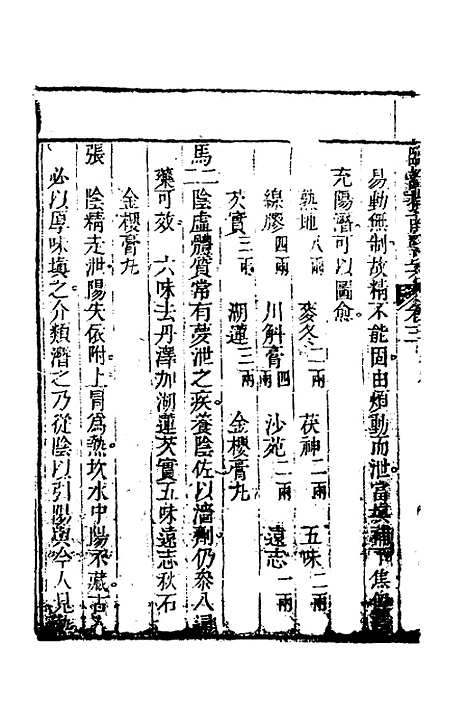 臨證指南醫案 卷三
易動無制故精不能固由煩動而泄當填下焦
充陽潛可以圖愈
熟地八兩 麥冬二兩 茯神二兩 五味二兩
線膠四兩 川斛膏四兩 沙苑二兩 遠志一兩
芡實三兩 湖蓮三兩 金櫻膏丸
馬二二 陰虛體質常有夢泄之疾養陰佐以濇劑仍參入通
藥可效 六味去丹澤加湖蓮芡實五味遠志秋石
金櫻膏丸
張 陰精走泄陽失依附上冒爲熱坎水中陽不藏古人
必以厚味填之介類潛之乃從陰以引陽與今人見熱